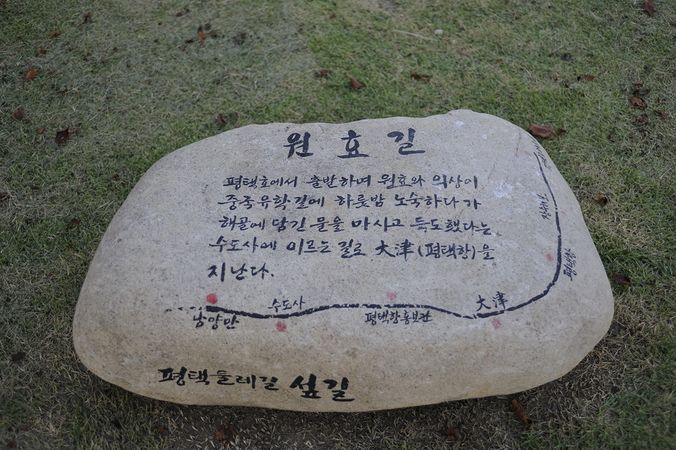 원효길
평택호에서 출발하며 원효와 의상이
중국유학길에 하룻밤 노숙하다가
해골에 담긴 물을 마시고 득도했다는
수도사에 이르는 길로 大津(평택항)을
지난다.
평택항
大津
평택항홍보관
수도사
남양만
평택둘레길 섶길